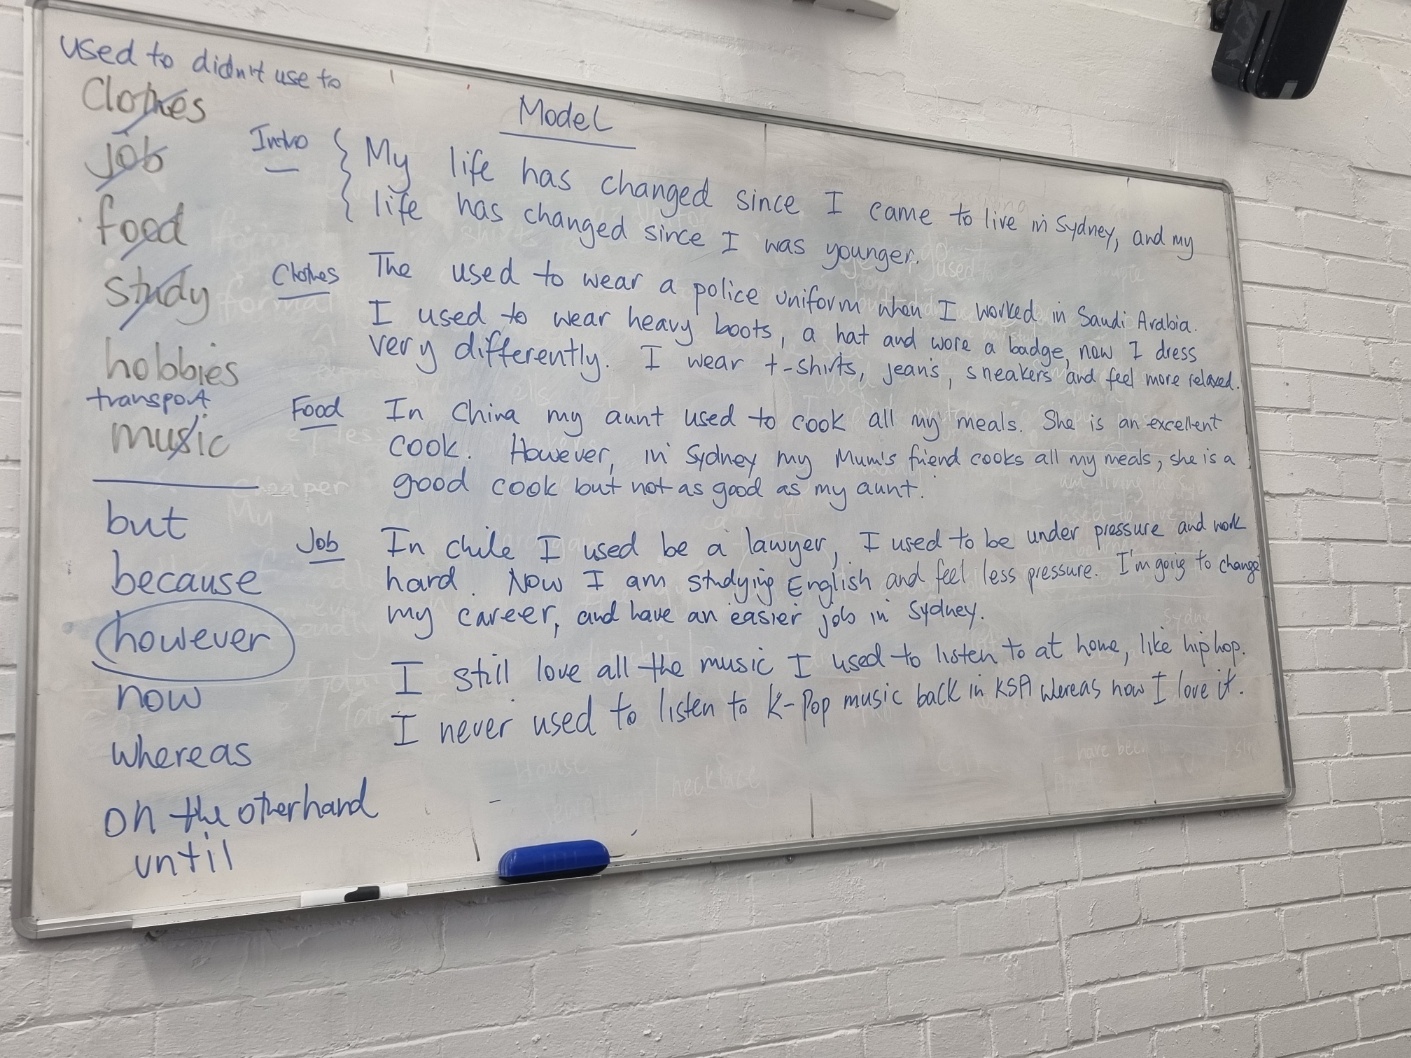 used to didn't use to
Clothes
Job
food
study
hobbies
transport
music
but
because
however
now
whereas
on the otherhand
until
Model
Intro
My life has changed since I came to live in Sydney, and my
life has changed since I was younger.
Clothes
The used to wear a police uniform when I worked in Saudi Arabia.
I used to wear heavy boots, a hat and wore a badge, now I dress
very differently. I wear t-shirts, jeans, sneakers and feel more relaxed.
Food
In China my aunt used to cook all my meals. She is an excellent
cook. However, in Sydney my Mum's friend cooks all my meals, she is a
good cook but not as good as my aunt.
Job
In chile I used be a lawyer, I used to be under pressure and work
hard. Now I am studying English and feel less pressure. I'm going to change
my career, and have an easier job in Sydney.
I still love all the music I used to listen to at home, like hip hop.
I never used to listen to K-Pop music back in KSA whereas now I love it.